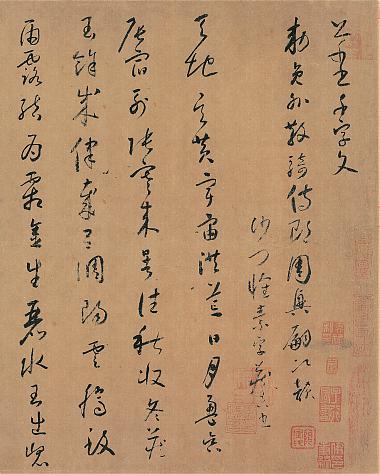 千字文
勅員外散騎侍郎周興嗣次韻
沙門懷素字藏真也
天地玄黃宇宙洪荒日月盈昃
辰宿列張寒來暑往秋收冬藏
閏餘成歲律呂調陽雲騰致
雨露結為霜金生麗水玉出崐